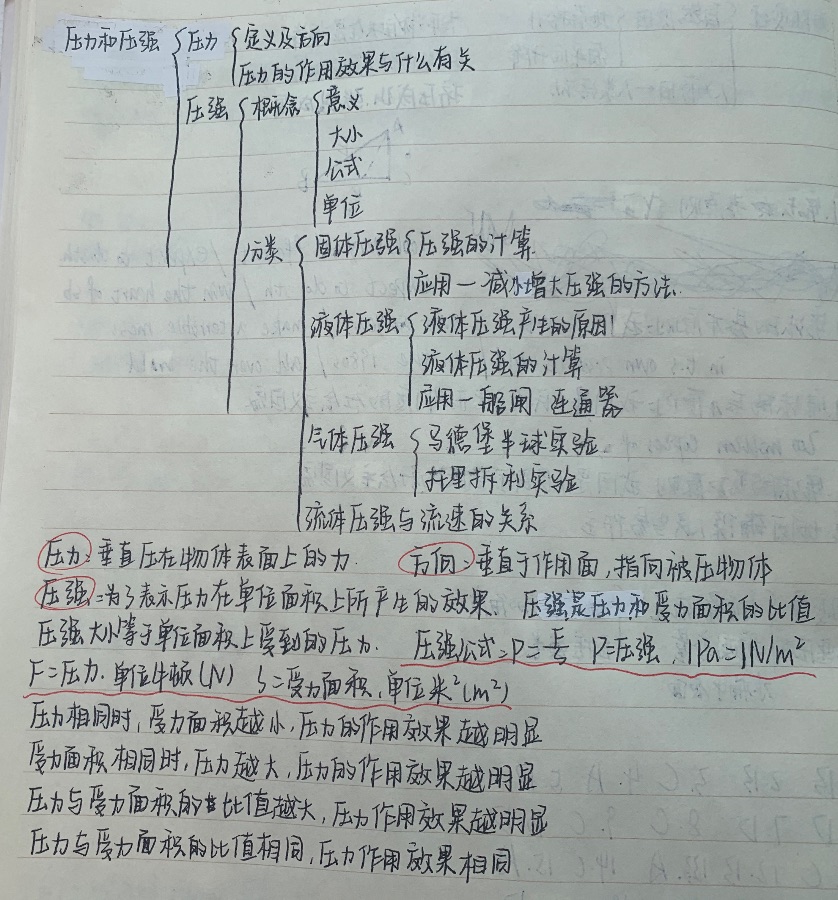 压力和压强 压力 定义及方向
压力的作用效果与什么有关
压强 概念 意义
大小
公式
单位
分类 固体压强 压强的计算
应用—减小增大压强的方法.
液体压强 液体压强产生的原因
液体压强的计算
应用—船闸 连通器
气体压强 马德堡半球实验
托里拆利实验
流体压强与流速的关系
压力:垂直压在物体表面上的力. 方向:垂直于作用面,指向被压物体
压强:为了表示压力在单位面积上所产生的效果. 压强是压力和受力面积的比值
压强大小等于单位面积上受到的压力. 压强公式:P=F/S P=压强, 1Pa=1N/m²
F=压力.单位牛顿(N) S=受力面积,单位米²(m²)
压力相同时,受力面积越小,压力的作用效果越明显
受力面积相同时,压力越大,压力的作用效果越明显
压力与受力面积的比值越大,压力作用效果越明显
压力与受力面积的比值相同,压力作用效果相同